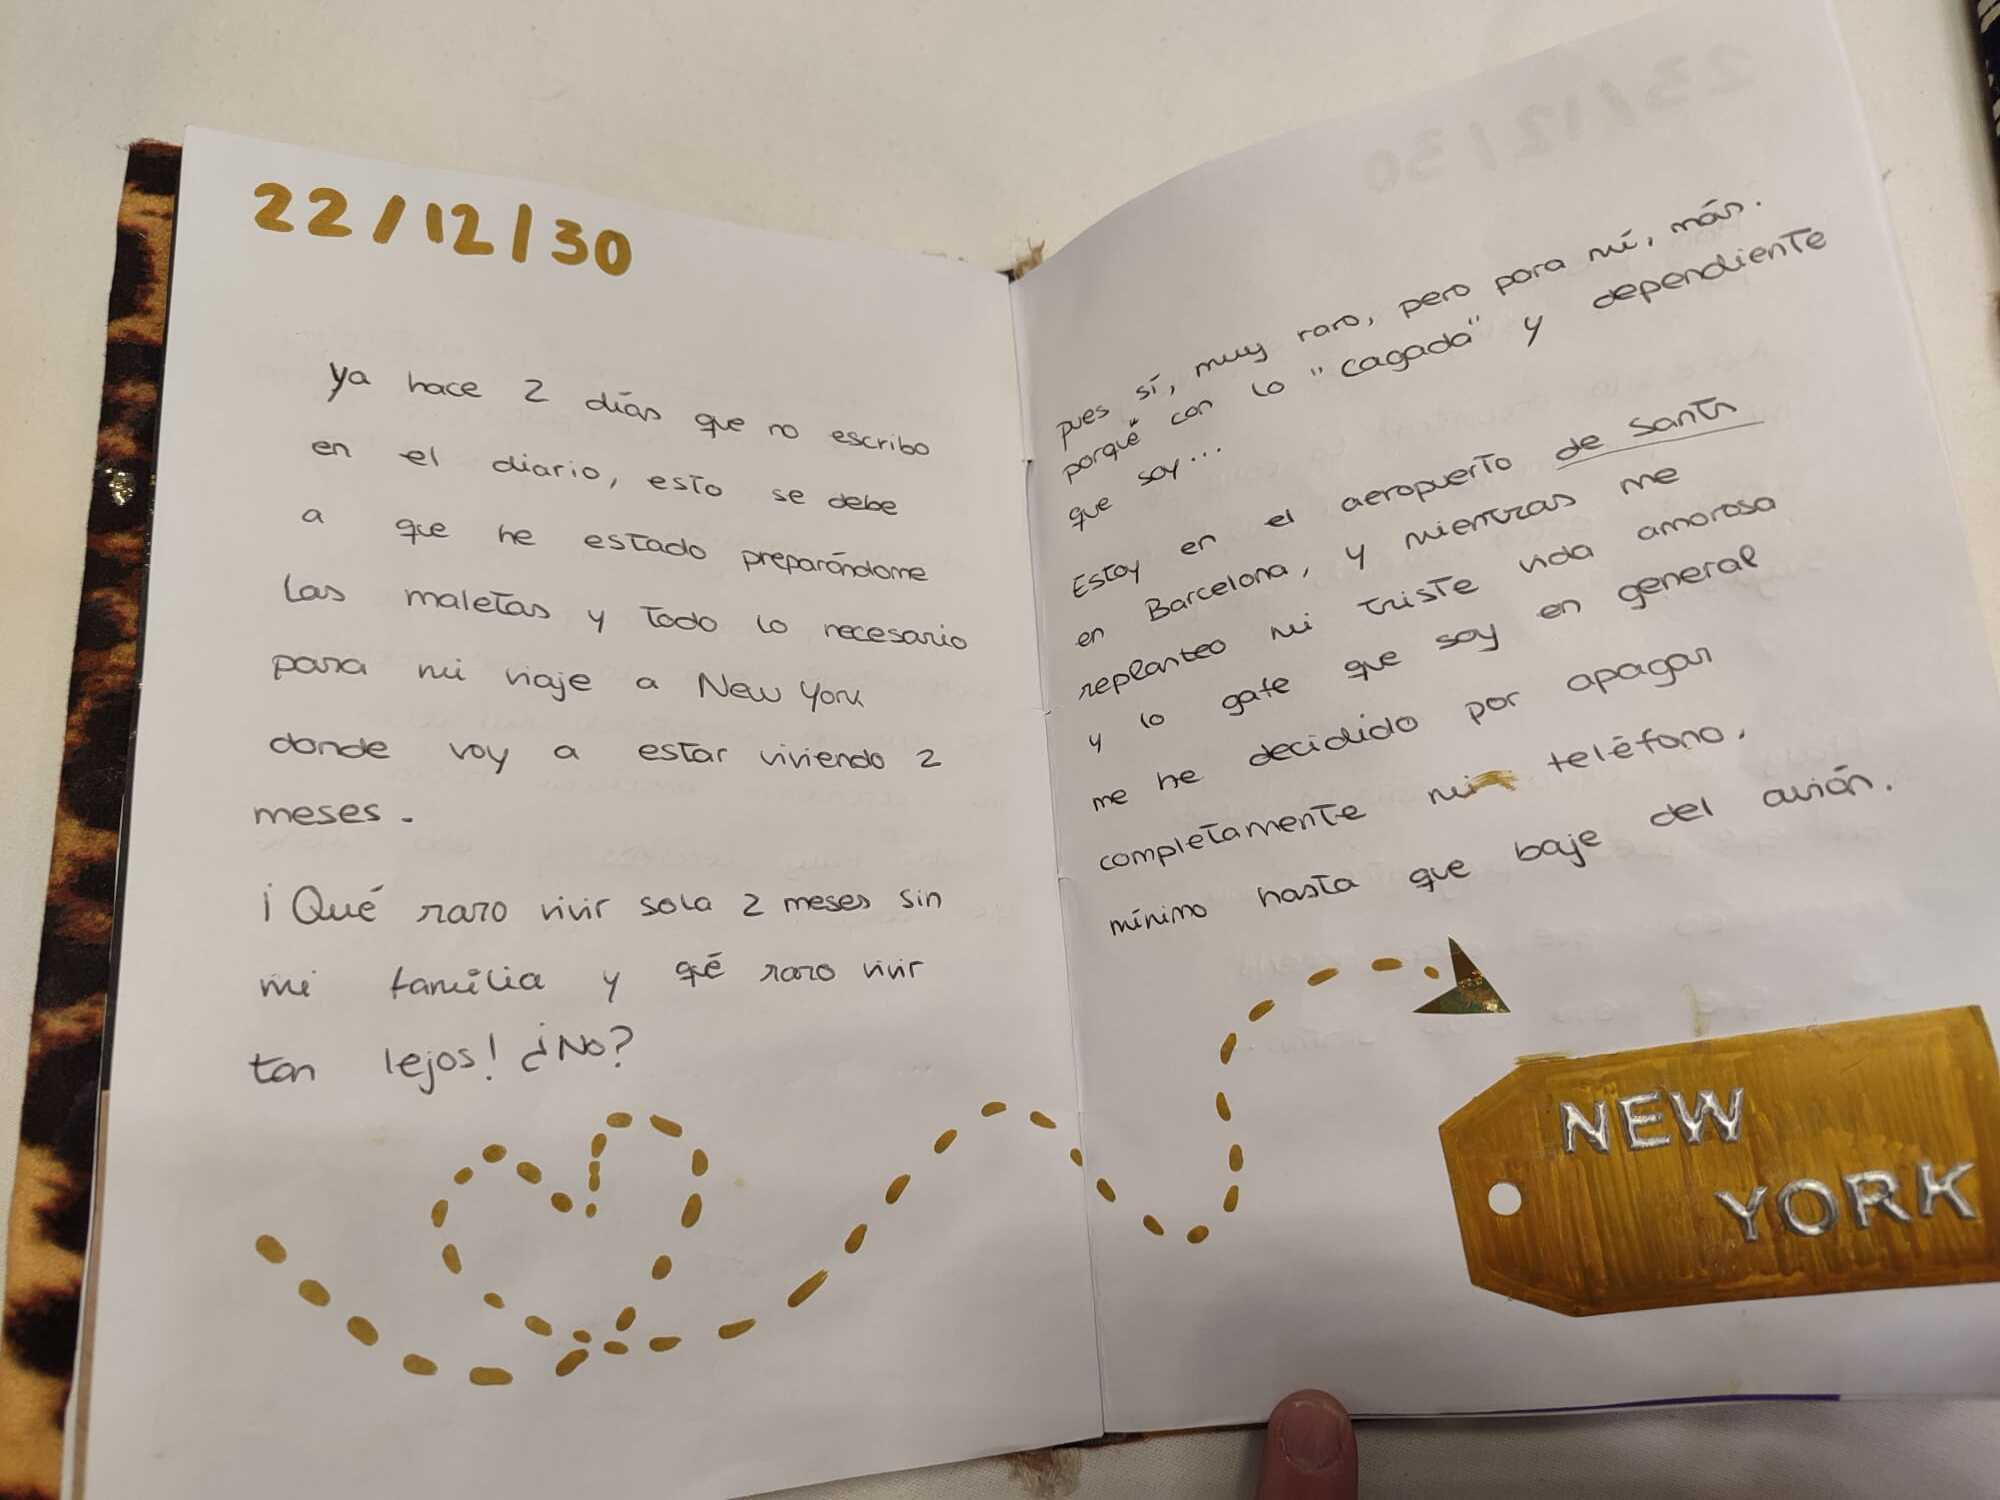 22/12/30
Ya hace 2 días que no escribo
en el diario, esto se debe
a que he estado preparándome
las maletas y todo lo necesario
para mi viaje a New York
donde voy a estar viviendo 2
meses.
¡Qué raro vivir sola 2 meses sin
mi família y qué raro vivir
tan lejos! ¿No?
23/12/30
pues sí, muy raro, pero para mí, más.
porqué con lo "cagada" y dependiente
que soy...
Estoy en el aeropuerto de Sants
en Barcelona, y mientras me
replanteo mi triste vida amorosa
y lo gafe que soy en general
me he decidido por apagar
completamente mi teléfono,
mínimo hasta que baje del avión.
NEW
YORK